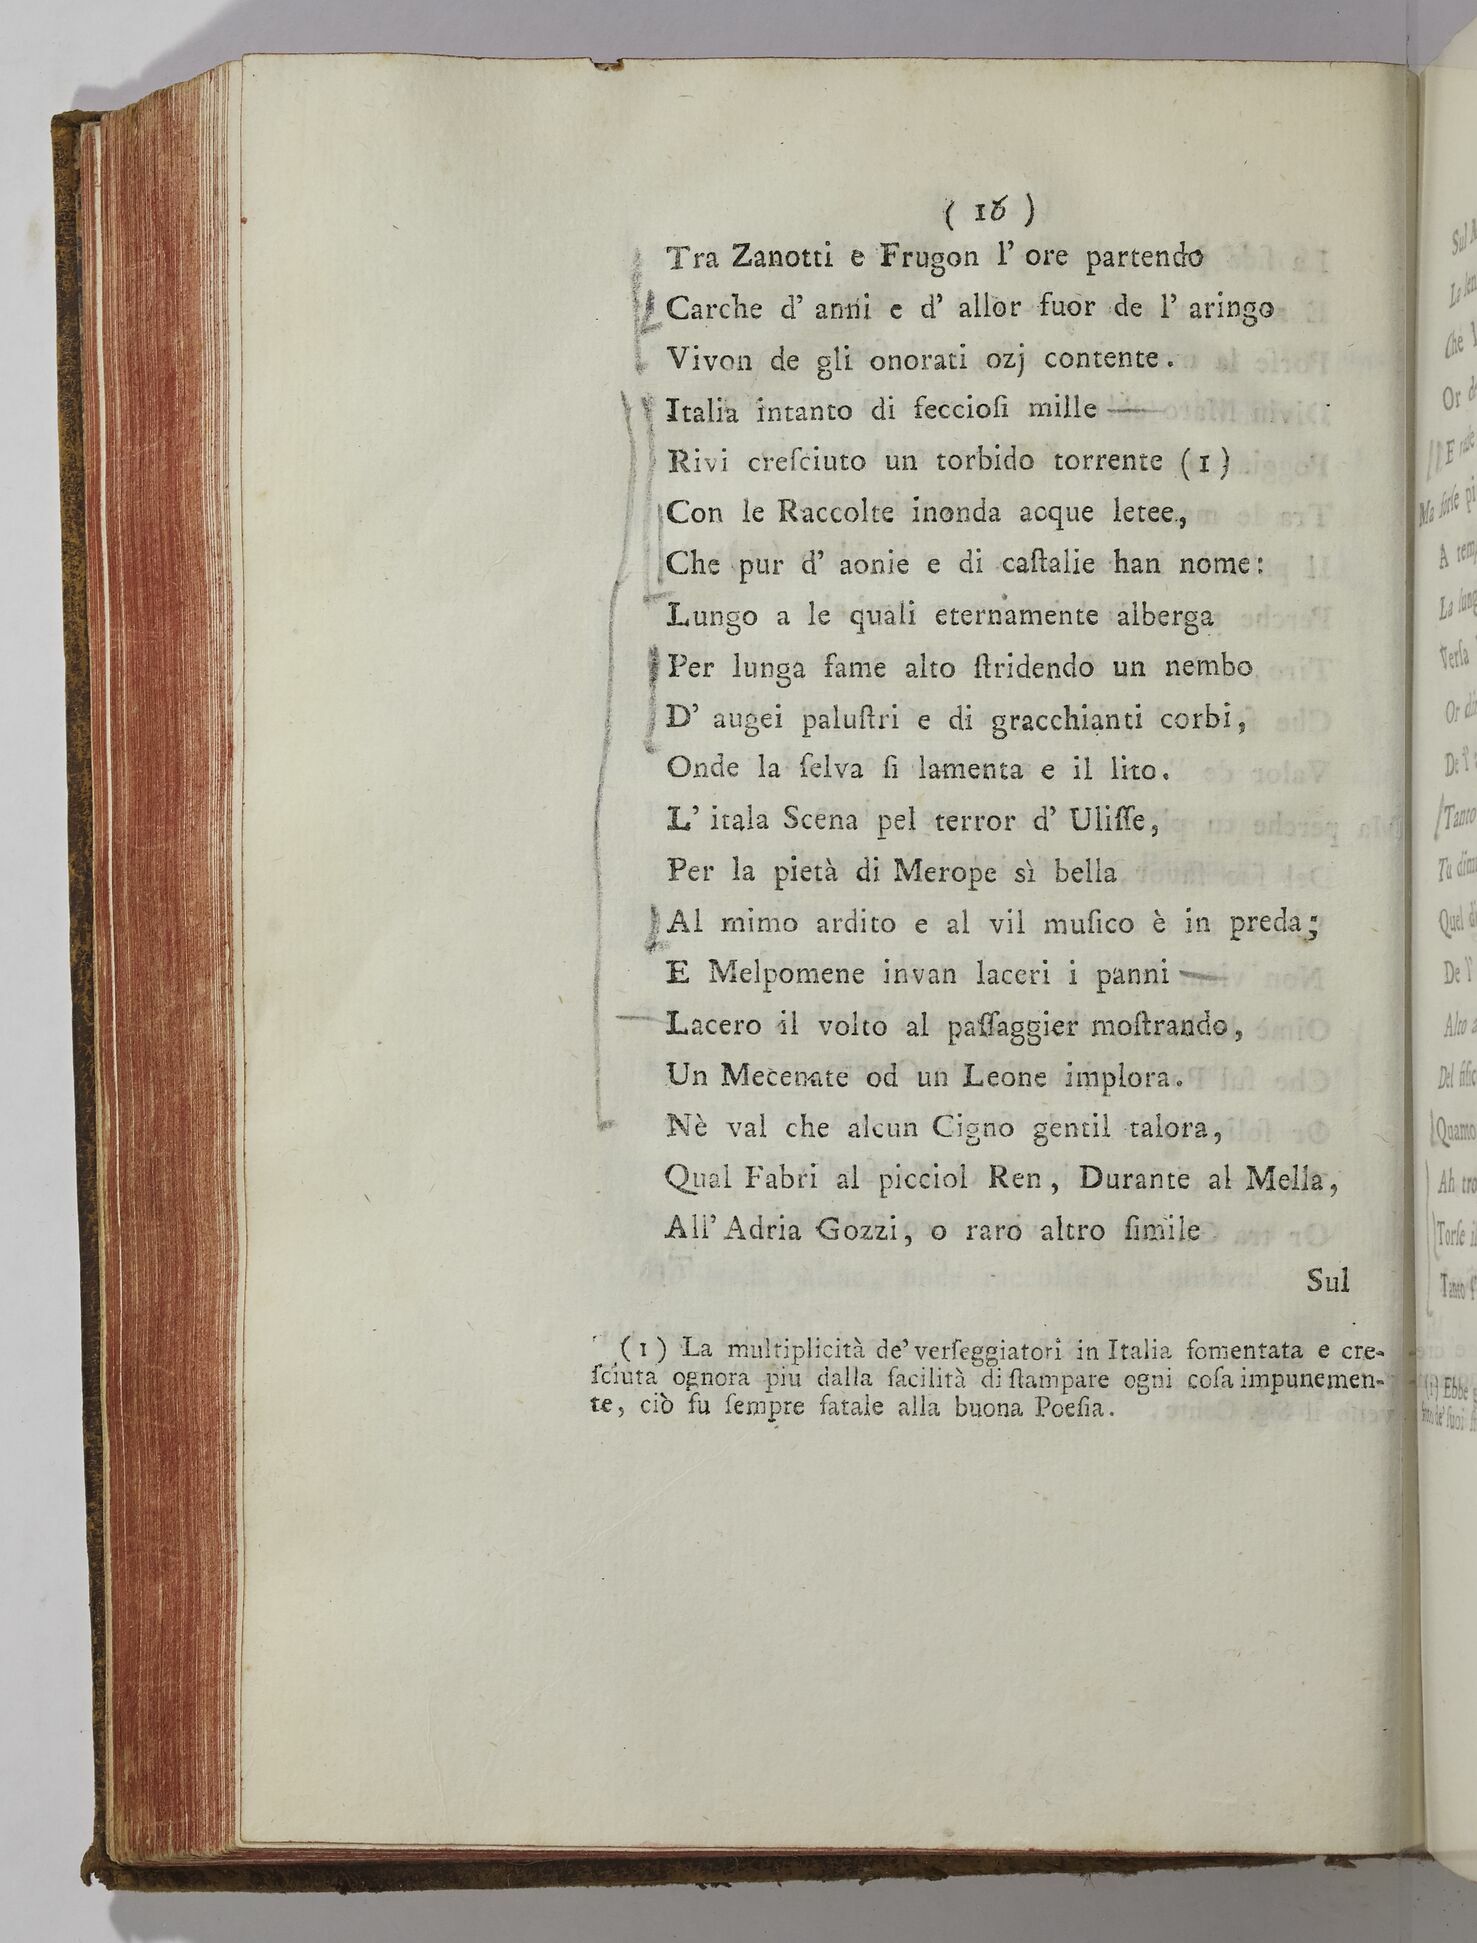 ( 16 )
Tra Zanotti e Frugon l' ore partendo
Carche d' anni e d' allor fuor de l' aringo
Vivon de gli onorati ozj contente.
Italia intanto di fecciosi mille
Rivi creſciuto un torbido torrente (1)
Con le Raccolte inonda acque letee,
Che pur d' aonie e di caſtalie han nome:
Lungo a le quali eternamente alberga
Per lunga fame alto ſtridendo un nembo
D' augei paluſtri e di gracchianti corbi,
Onde la ſelva ſi lamenta e il lito.
L' itala Scena pel terror d' Uliſſe,
Per la pietà di Merope sì bella
Al mimo ardito e al vil muſico è in preda;
E Melpomene invan laceri i panni
Lacero il volto al paſſaggier moſtrando,
Un Mecenate od un Leone implora.
Nè val che alcun Cigno gentil talora,
Qual Fabri al picciol Ren, Durante al Mella,
All' Adria Gozzi, o raro altro ſimile
Sul
(1) La multiplicità de' verſeggiatori in Italia fomentata e cre-
ſciuta ognora piu dalla facilità di ſtampare ogni coſa impunemen-
te, ciò fu ſempre fatale alla buona Poeſia.
Sul
Or d
E
Ma forſe pi
A
La lung
Verſa
Or
Tanto
Tu
Quel d
De l'
Alto a
Del
Quanto
Ah tro
Torſe
Tanto
(1) Ebbe
de' ſuoi